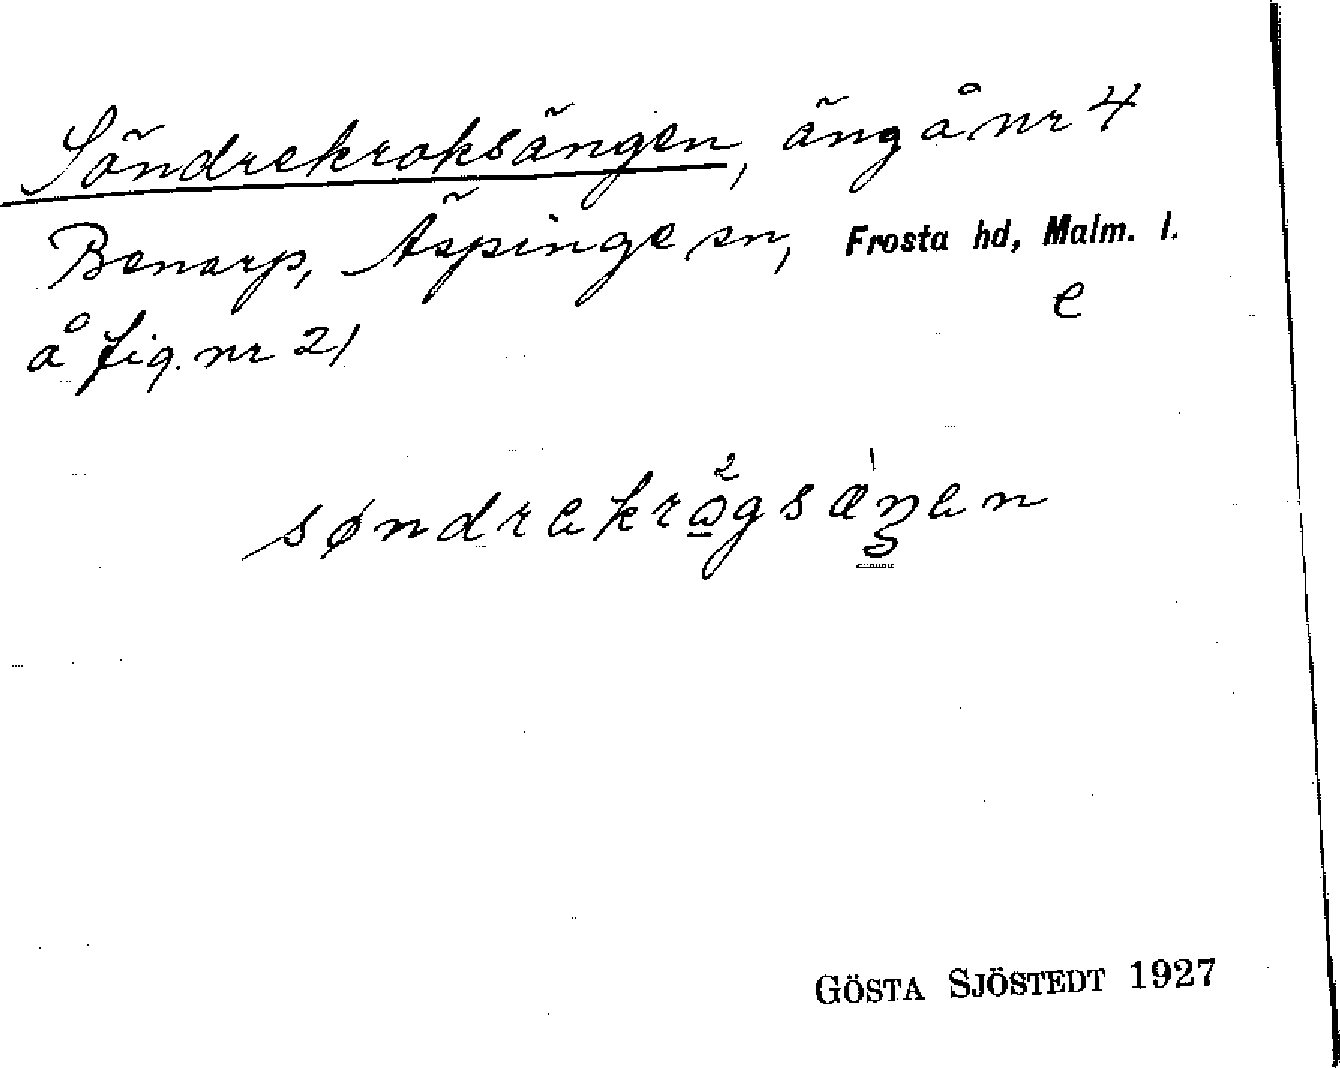 Söndrekroksängen, äng å nr 4
Benarp, Äspinge sn, Frosta hd, Malm. l.
e
å fig. nr 21
GÖSTA SJÖSTEDT 1927